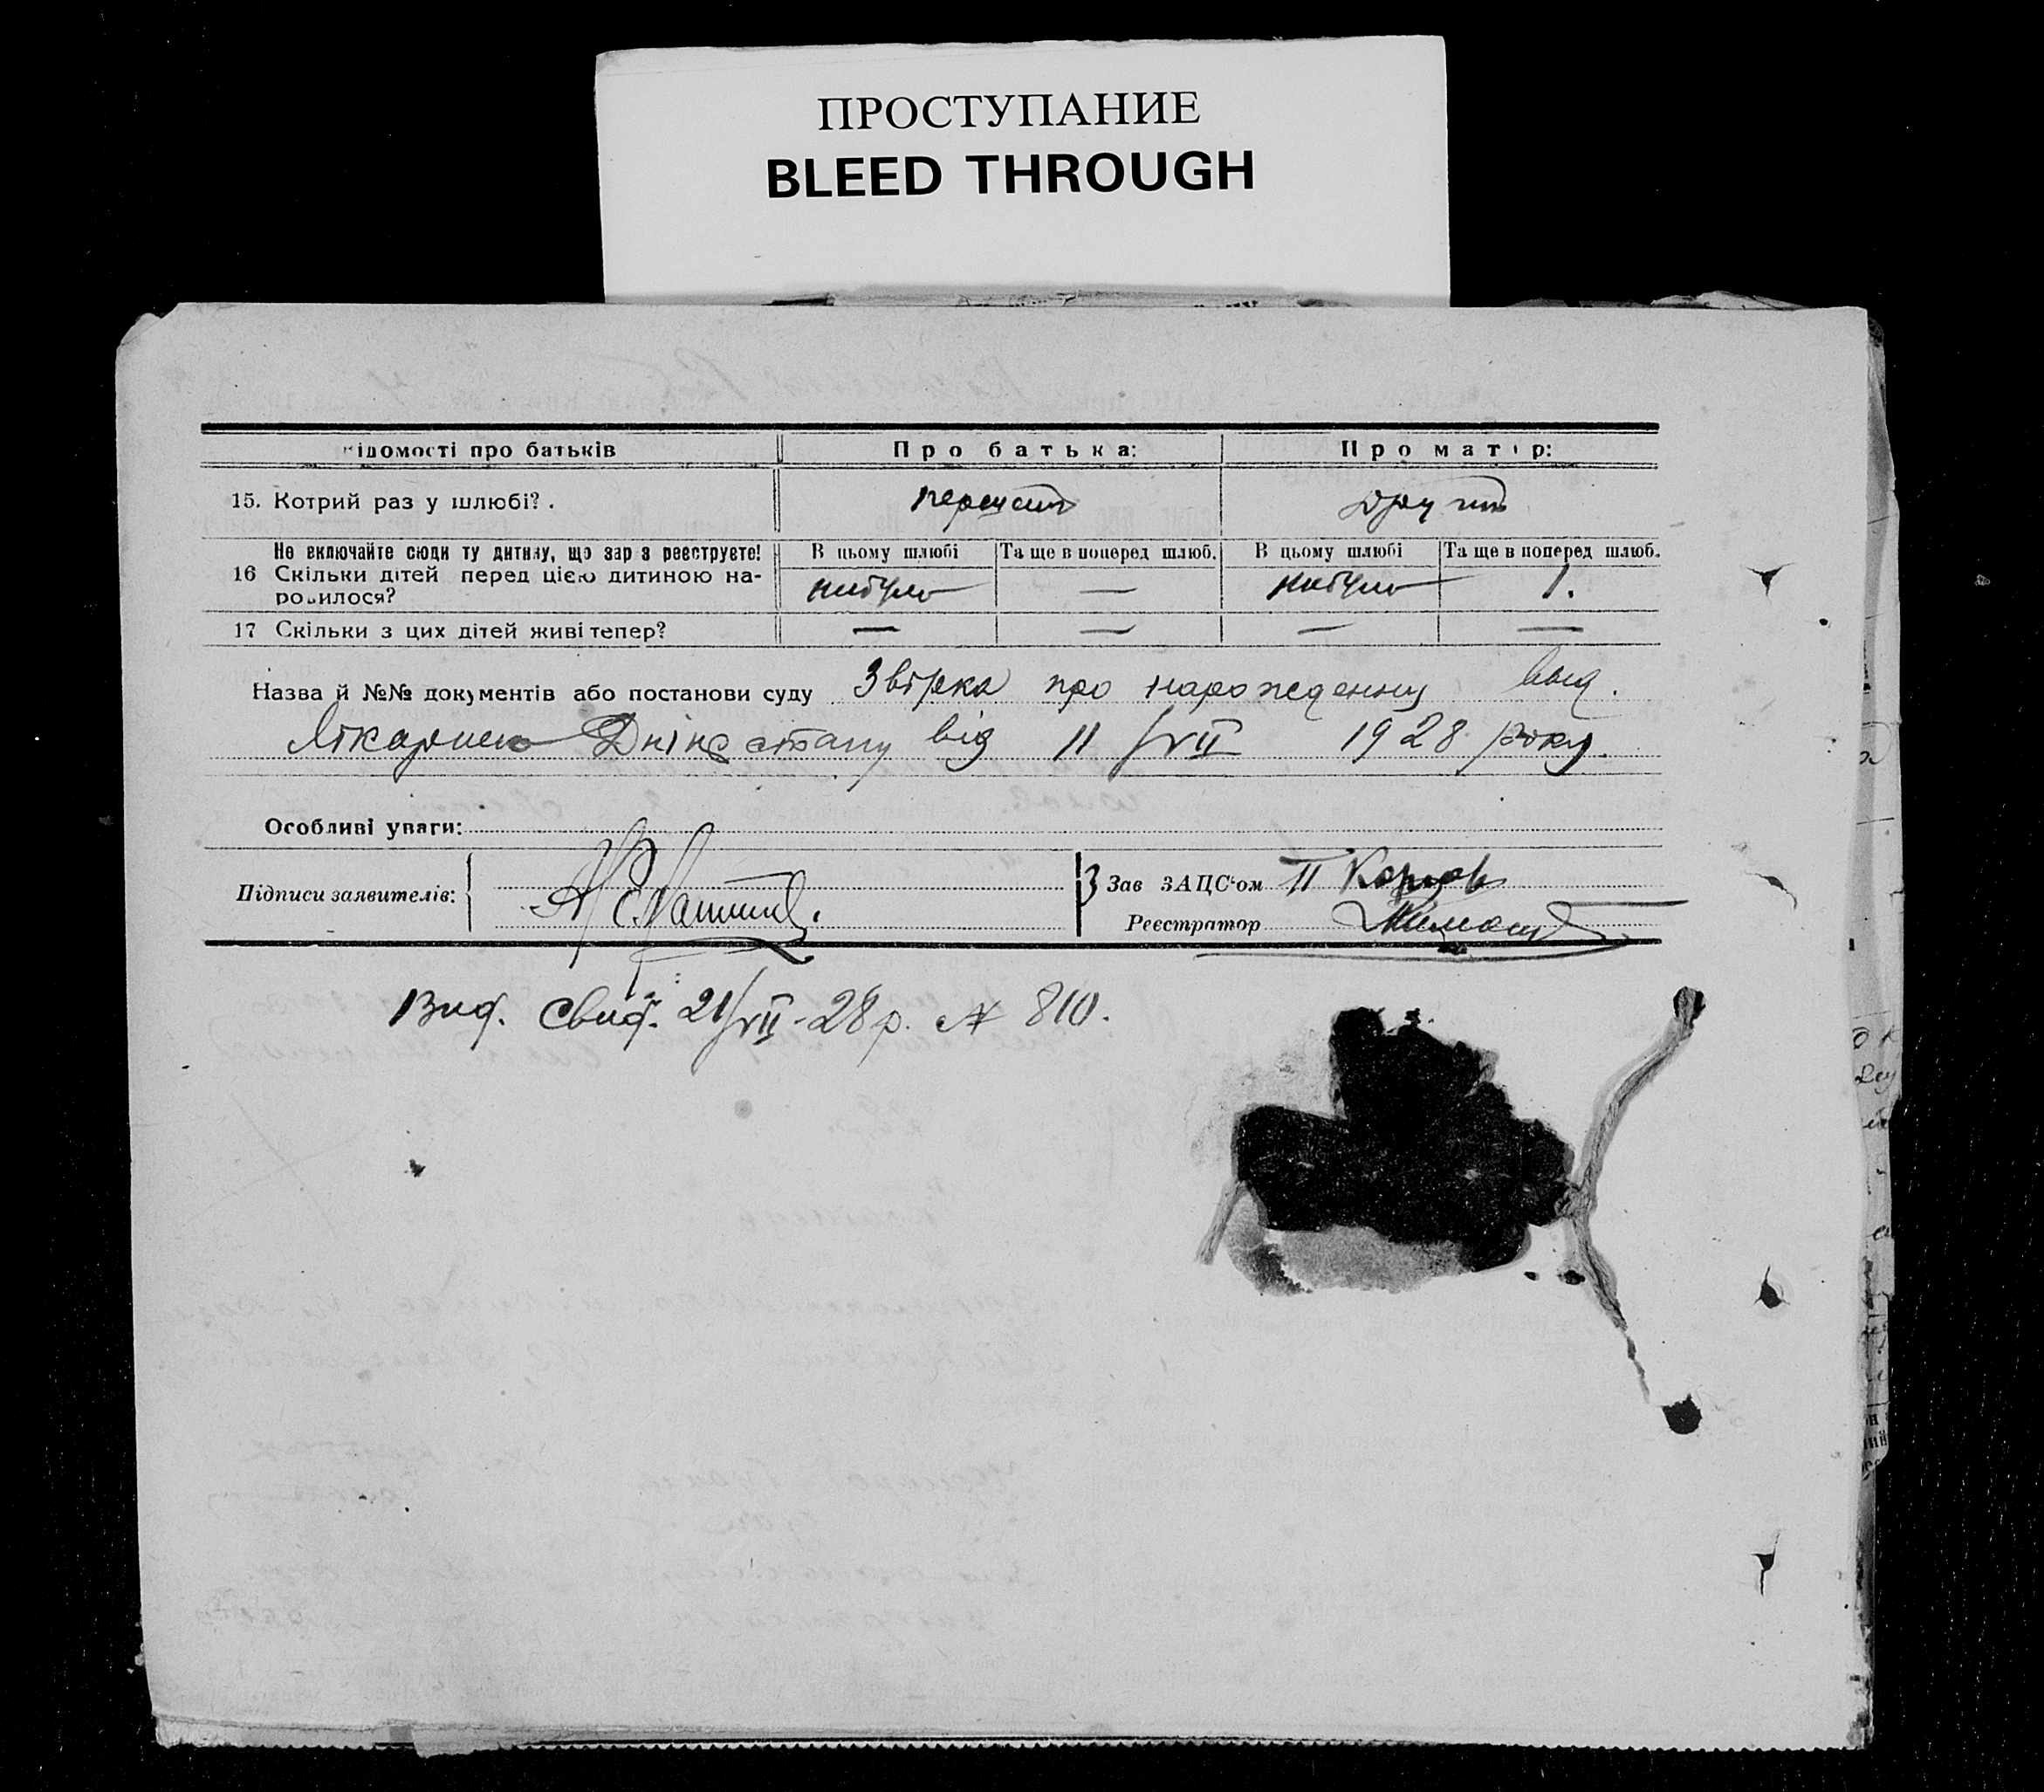 ПРОСТУПАНИЕ
BLEED THROUGH
ідомості про батьків Про батька: Про матір:
15. Котрий раз у шлюбі? . перший другий
Не включайте сюди ту дитину, що зараз реєструєте! В цьому шлюбі Та ще в поперед шлюб. В цьому шлюбі Та ще в поперед шлюб.
16 Скільки дітей перед цією дитиною на-
родилося? небуло — небуло 1.
17 Скільки з цих дітей живі тепер? — — — —
Назва й №№ документів або постанови суду Звірка про народженну выд.
Лікарнею від 11/VII 1928 року.
Особливі уваги:
Підписи заявителів:
Зав ЗАЦС'ом
Реєстратор
Вид. Свид. 21/VII-28 р. № 810.